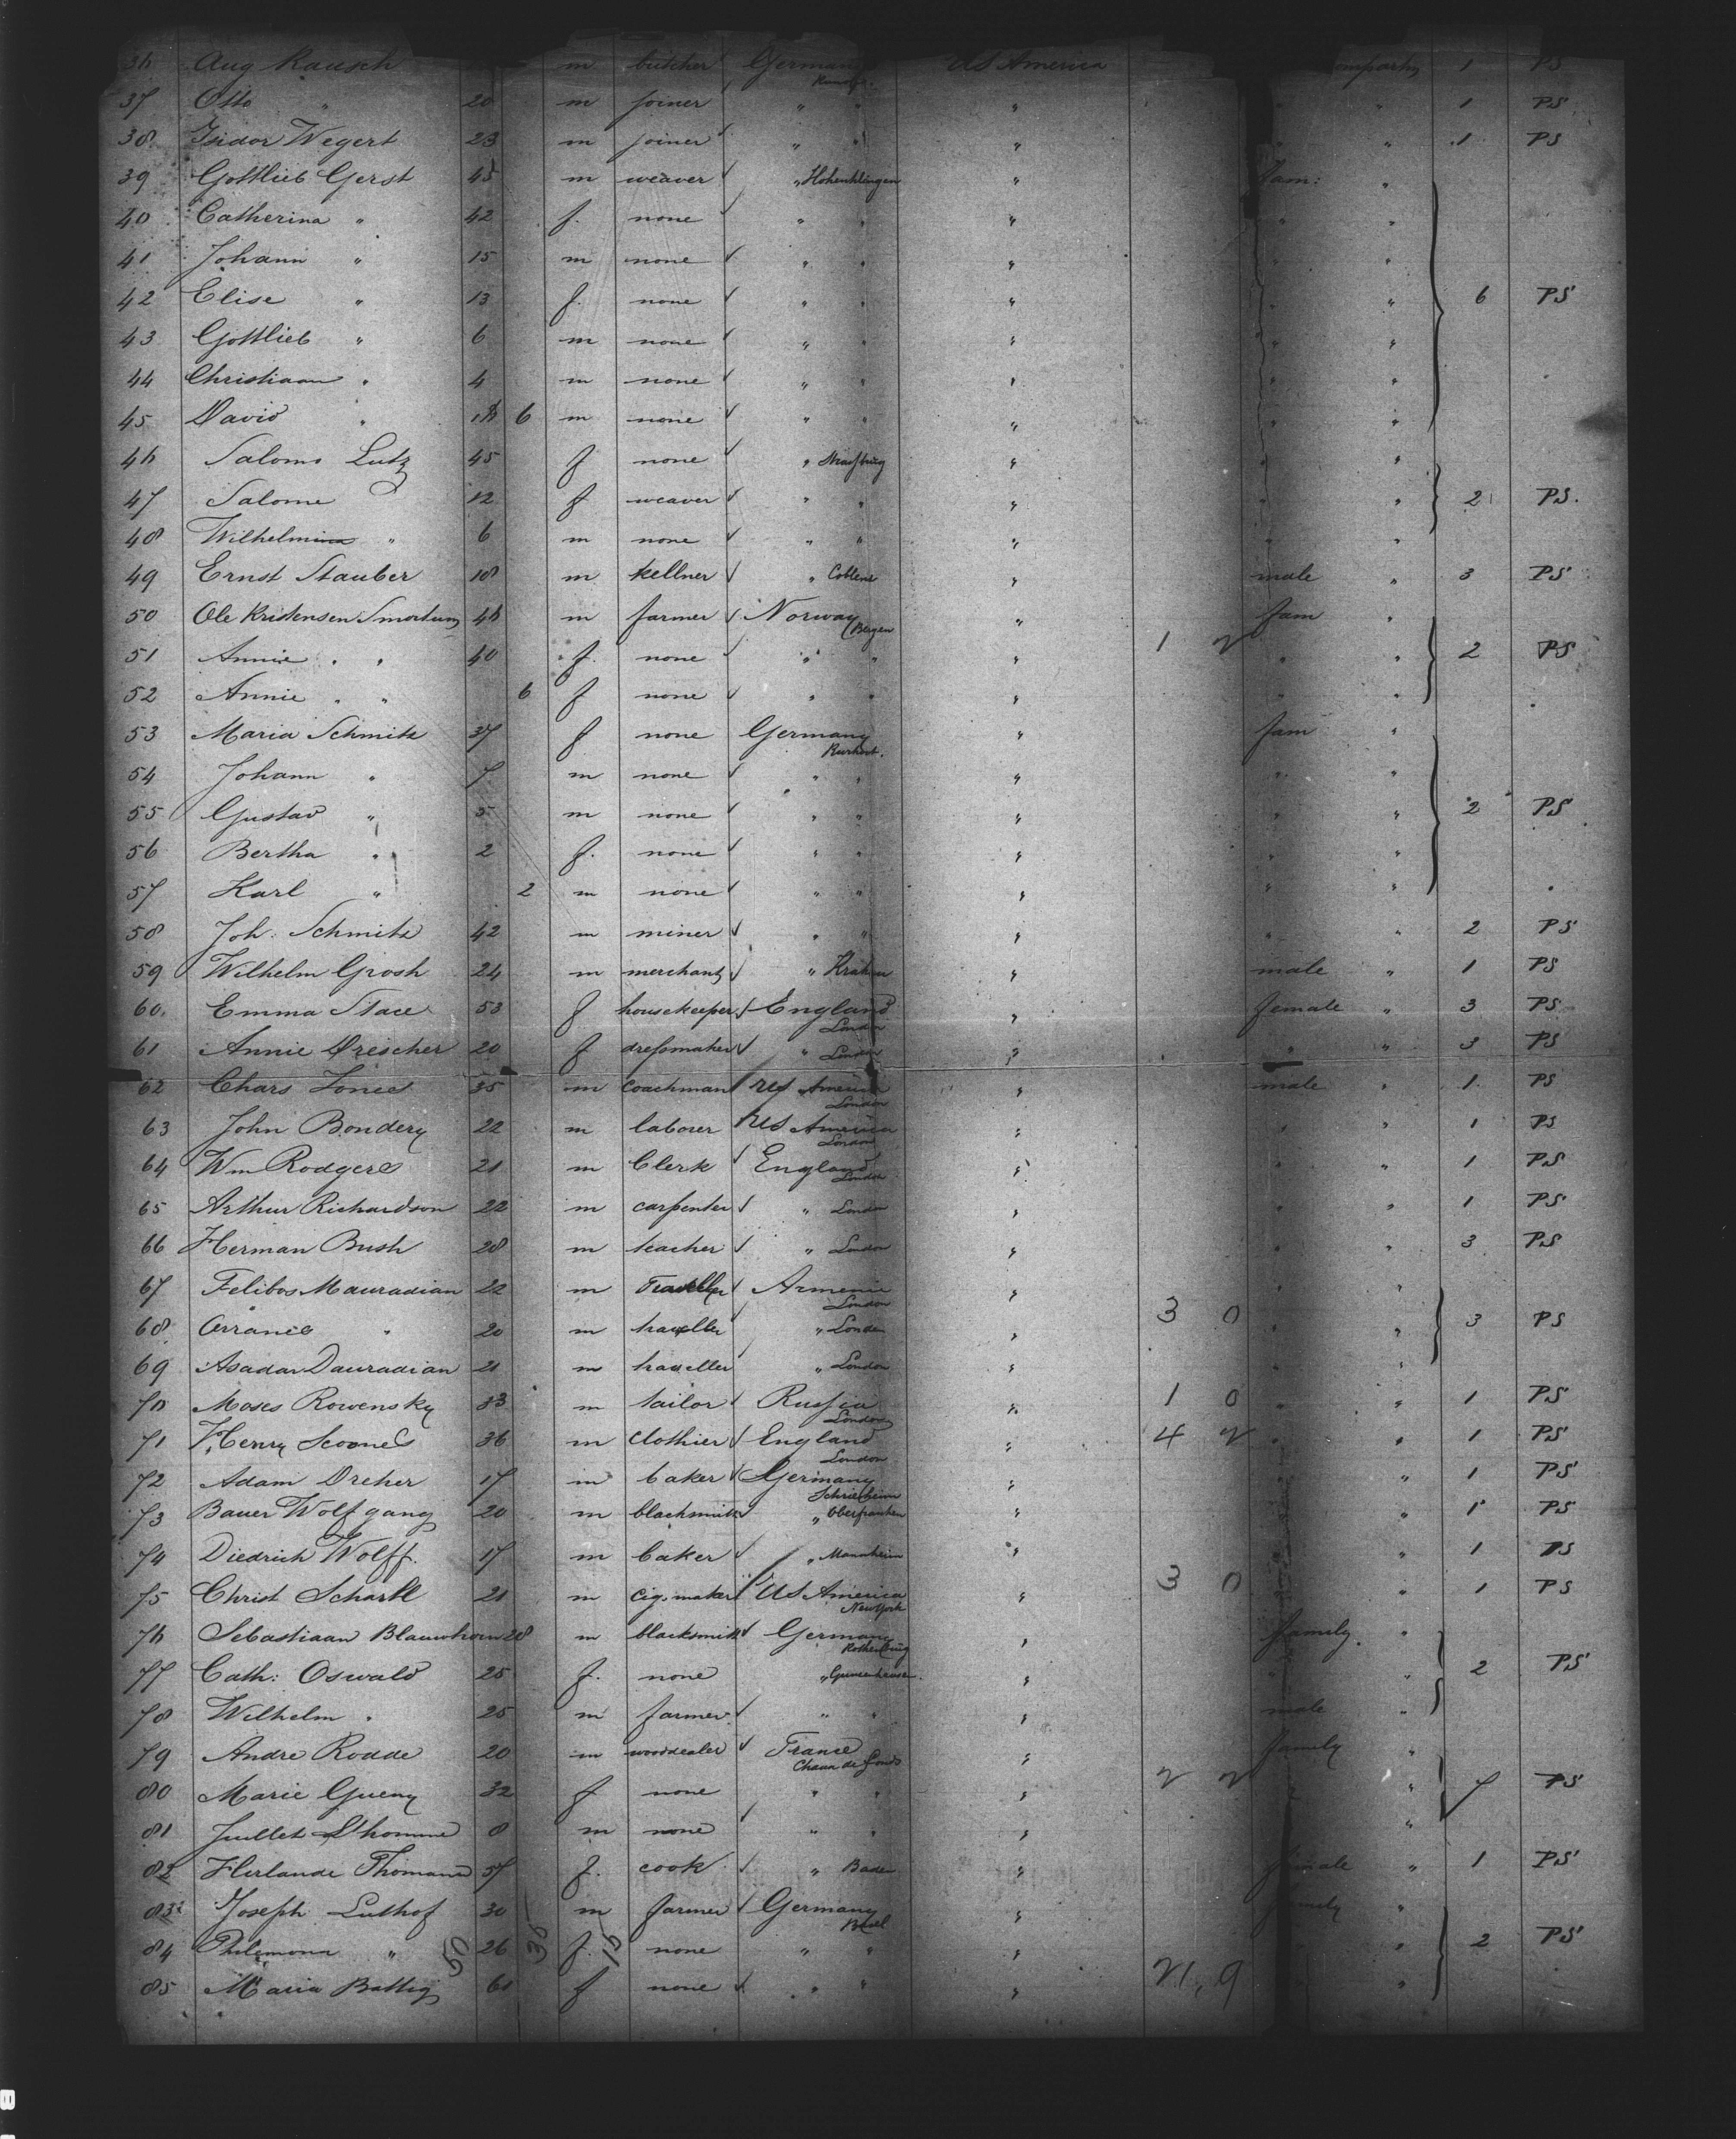 36 Aug Rausch m butcher Germany US America comparty 1 PS
37 Otto " 20 m joiner " " " " 1 PS
38 Isidor Wegert 23 m joiner " " " " 1 PS
39 Gottlieb Gerst 45 m weaver " " fam: "
40 Catherina " 42 f. none " " " " "
41 Johann " 15 m none " " " " "
42 Elise " 13 f. none " " " " " 6 PS
43 Gottlieb " 6 m none " " " " "
44 Christiaan " 4 m none " " " " "
45 David " 6 m none " " " " "
46 Salomo Lutz 45 f none " Strassburg " " "
47 Salome 12 f weaver " " " " " 2 PS.
48 Wilhelmina " 6 m none " " " " "
49 Ernst Stauber 18 m kellner " Coblenz " male " 3 PS
50 Ole Kristensen Smortum 46 m farmer Norway Bergen " fam "
51 Annie " " 40 f. none " " " 1 2 " " 2 PS
52 Annie " " 6 f none " " " " "
53 Maria Schmitz 37 f none Germany " fam "
54 Johann " 7 m none " " " " "
55 Gustav " 5 m none " " " " " 2 PS
56 Bertha " 2 f. none " " " " "
57 Karl " 2 m none " " " " "
58 Joh. Schmitz 42 m miner " " " " " 2 PS
59 Wilhelm Grosh 24 m merchant " " male " 1 PS
60. Emma Stace 53 f housekeeper England London " female " 3 PS
61 Annie Drescher 20 f dressmaker " London " " " 3 PS
62 Chars Jones 35 m coachman US America London " male " 1 PS
63 John Bondery 22 m laborer US America London " " " 1 PS
64 Wm Rodgers 21 m Clerk England London " " " 1 PS
65 Arthur Richardson 22 m carpenter " London " " " 1 PS
66 Herman Bush 28 m teacher " London " " " 3 PS
67 Felibos Mauradian 22 m Traveller Armenia London " " "
68 Arranis " 20 m traveller " London " 3 0 " " 3 PS
69 Asadar Dauradian 21 m traveller " London " " "
70 Moses Rowensky 33 m tailor Russia London " 1 0 " " 1 PS
71 Henry Scones 36 m clothier England London " 4 2 " " 1 PS
72 Adam Dreher 17 m baker Germany Schriesheim " " 1 PS
73 Bauer Wolfgang 20 m blacksmith " Oberfranken " " 1 PS
74 Diedrich Wolff. 17 m baker " Mannheim " " 1 PS
75 Christ Scharll 21 m cig. maker US America New York " 3 0 " 1 PS
76 Sebastiaan Blauwhorn 28 m blacksmith Germany Rothenburg " family "
77 Cath: Oswald 25 f. none " " " " 2 PS
78 Wilhelm " 25 m farmer " " " male "
79 Andre Rodde 20 m wooddealer France Chaux de Fonds " family "
80 Marie Gueny 32 f none " " " 2 2 " 7 PS
81 Juillet Lhomme 8 m none " " " "
82 Herlande Thomann 57 f. cook " Baden " female " 1 PS
83 Joseph Luthof 30 m farmer Germany Basel " family "
84 Philemona " 50 26 35 f. 15 none " " " " 2 PS
85 Maria Battig 60 f none " " " 21, 9 "